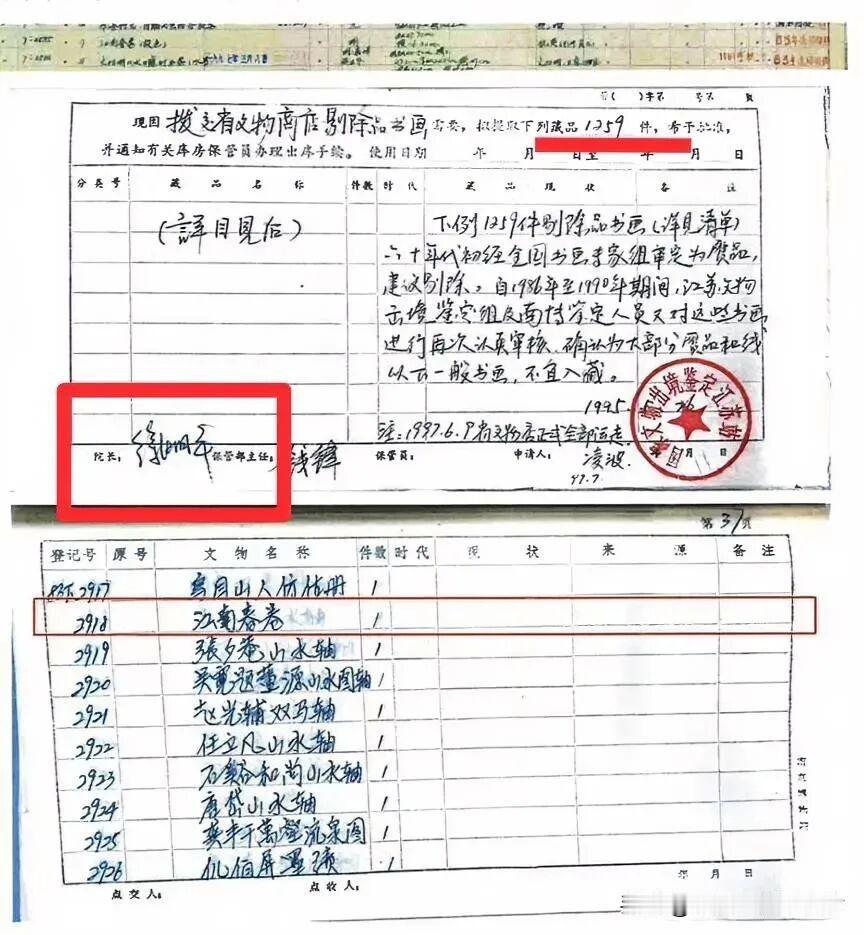 江南春卷(设色)
字( )字第 号第 页
现因拨交省文物商店剔除品书画需要,拟提取下列藏品1259件,希予批准,
并通知有关库房保管员办理出库手续。使用日期 年 月 日至 年 月 日
分类号 藏品名称 件数 时代 藏品现状 备注
(詳目見后)
下列1259件剔除品书画(详见清单)
六十年代初经全国书画专家组审定为赝品,
建议剔除。自1986年至1990年期间,江苏文物
出境鉴定组及南博鉴定人员又对这些书画
进行再次认真审核,确认为大部分赝品和线
以下一般书画,不宜入藏。
1995
注:1997.6.9省文物店正式全部运走
年 月 日
院长:徐湖平 保管部主任:钱锋 保管员: 申请人:凌波
97.7.
国家文物出境鉴定江苏站
第37页
登记号 原号 文物名称 件数 时代 现状 来源 备注
2917 烏目山人仿古册 1
2918 江南春卷 1
2919 張夕庵山水轴 1
2920 吴寬題董源山水图轴 1
2921 赵光辅双马轴 1
2922 任立凡山水轴 1
2923 石谿和尚山水轴 1
2924 唐岱山水轴 1
2925 龚半千萬壑流泉图 1
2926 1
年 月 日
点交人: 点收人: